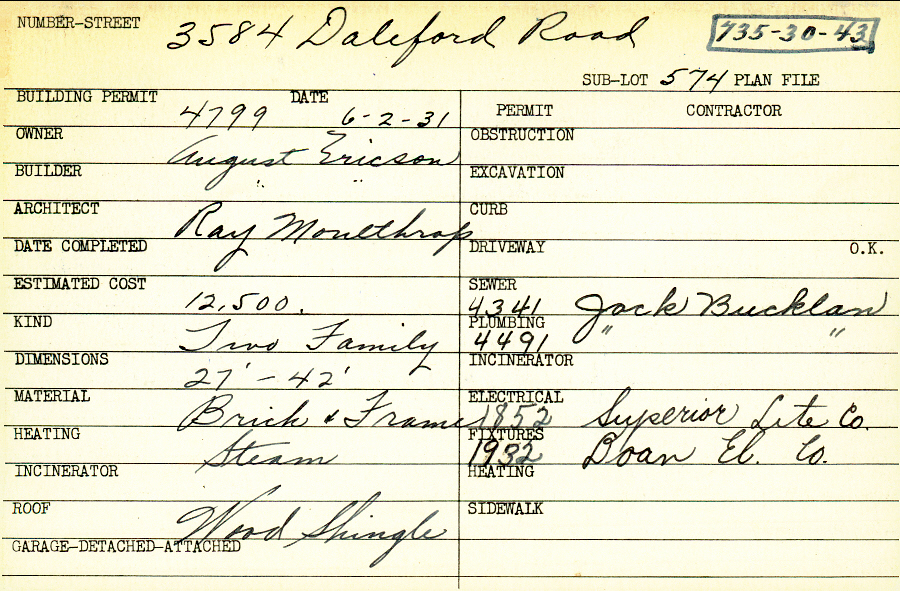 NUMBER-STREET 3584 Daleford Road 735-30-43
SUB-LOT 574 PLAN FILE
BUILDING PERMIT 4799 DATE 6-2-31 PERMIT CONTRACTOR
OWNER August Ericson OBSTRUCTION
BUILDER " " EXCAVATION
ARCHITECT Ray Monethrop CURB
DATE COMPLETED DRIVEWAY O.K.
ESTIMATED COST 12,500. SEWER 4341 Jack Bucklan
KIND Two Family PLUMBING 4491 " "
DIMENSIONS 27' - 42' INCINERATOR
MATERIAL Brick & Frame ELECTRICAL 1852 Superior Lite Co.
HEATING Steam FIXTURES 1932 Doan El. Co.
INCINERATOR HEATING
ROOF Wood Shingle SIDEWALK
GARAGE-DETACHED-ATTACHED